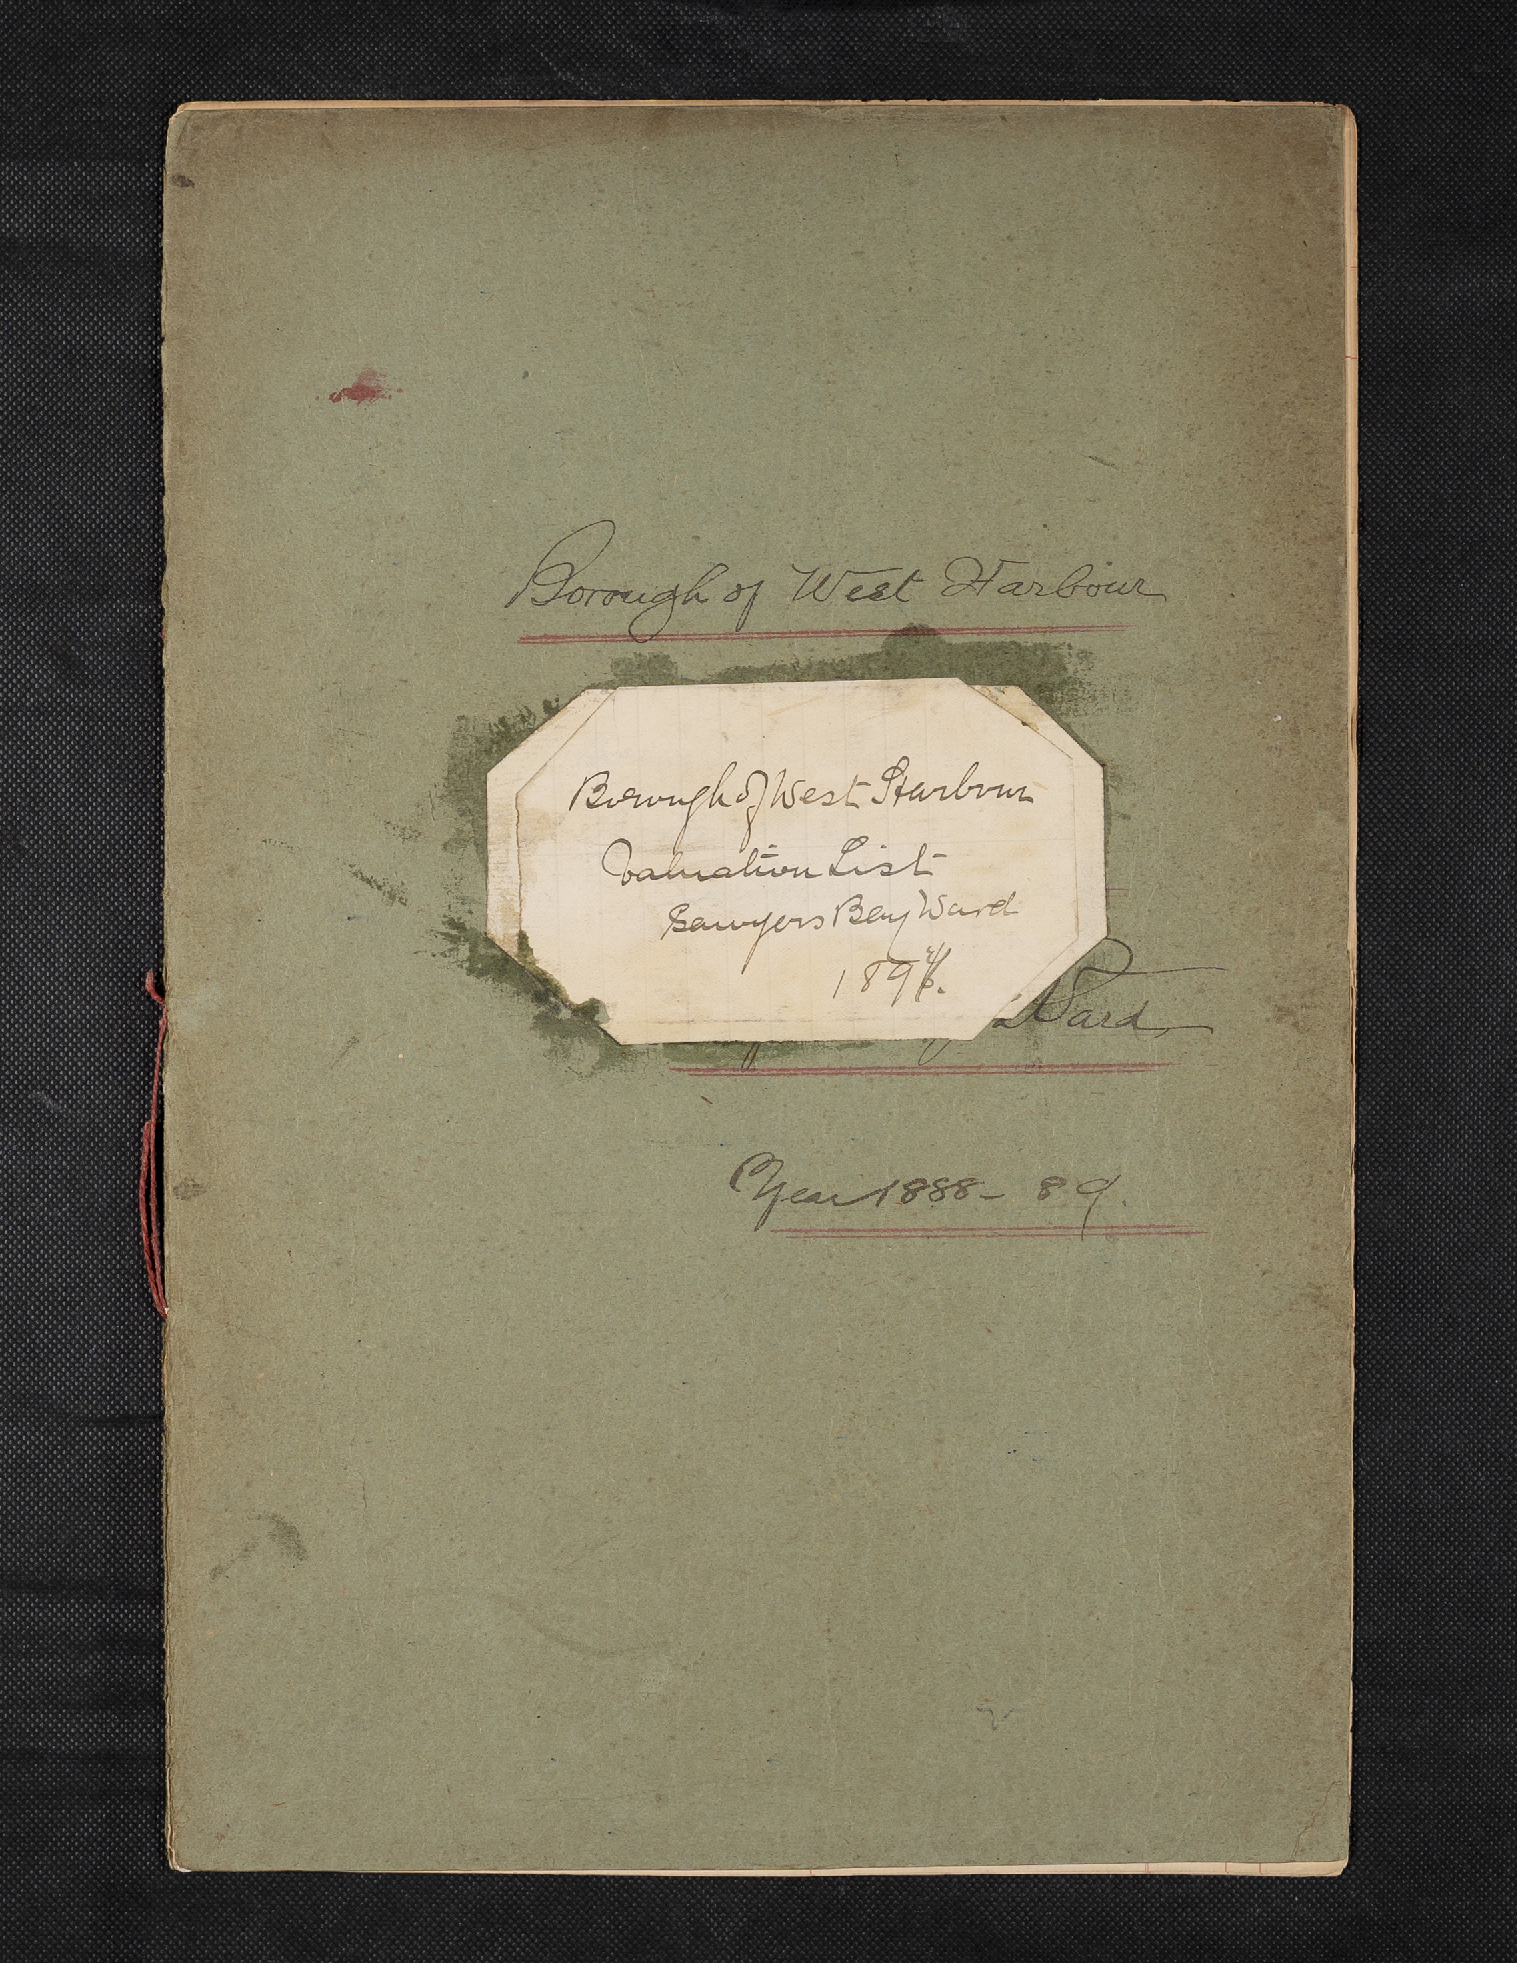 Borough of West Harbour
Borough of West Harbour
Valuation List
Sawyers Bay Ward
Ward
Year 1888-89.